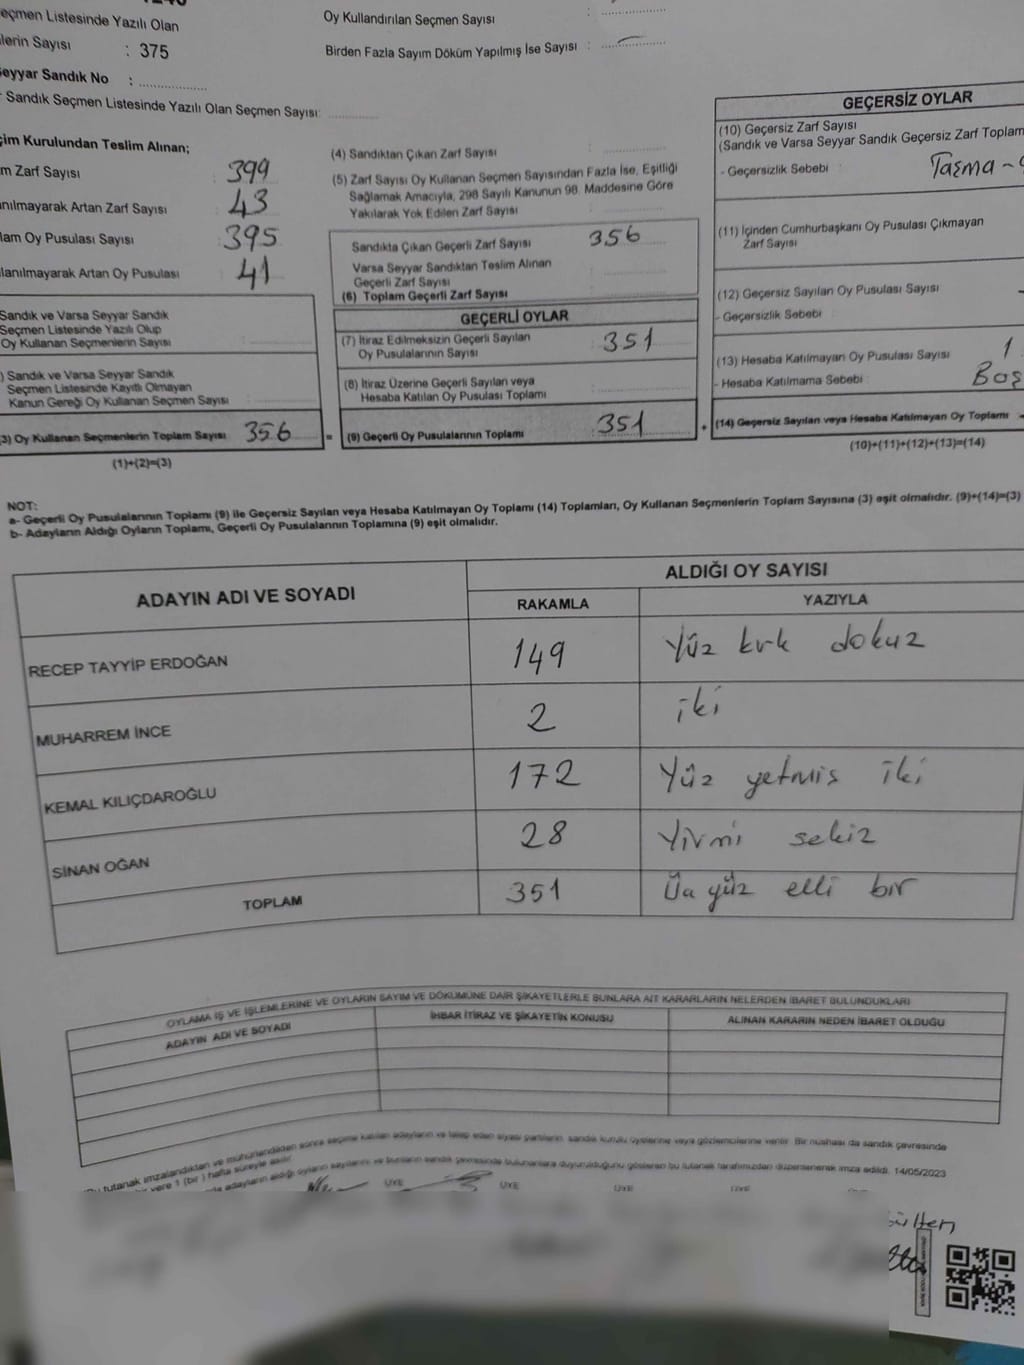 Seçmen Listesinde Yazılı Olan
Sayısı : 375
Seyyar Sandık No :
Sandık Seçmen Listesinde Yazılı Olan Seçmen Sayısı:
Oy Kullandırılan Seçmen Sayısı :
Birden Fazla Sayım Döküm Yapılmış İse Sayısı :
Kurulundan Teslim Alınan;
Zarf Sayısı : 399
Artan Zarf Sayısı : 43
Oy Pusulası Sayısı : 395
Artan Oy Pusulası : 41
Sandık ve Varsa Seyyar Sandık
Seçmen Listesinde Yazılı Olup
Oy Kullanan Seçmenlerin Sayısı :
) Sandık ve Varsa Seyyar Sandık
Seçmen Listesinde Kayıtlı Olmayan
Kanun Gereği Oy Kullanan Seçmen Sayısı :
3) Oy Kullanan Seçmenlerin Toplam Sayısı 356 =
(1)+(2)=(3)
(4) Sandıktan Çıkan Zarf Sayısı :
(5) Zarf Sayısı Oy Kullanan Seçmen Sayısından Fazla İse, Eşitliği
Sağlamak Amacıyla, 298 Sayılı Kanunun 98. Maddesine Göre
Yakılarak Yok Edilen Zarf Sayısı :
Sandıkta Çıkan Geçerli Zarf Sayısı : 356
Varsa Seyyar Sandıktan Teslim Alınan
Geçerli Zarf Sayısı :
(6) Toplam Geçerli Zarf Sayısı
GEÇERLİ OYLAR
(7) İtiraz Edilmeksizin Geçerli Sayılan
Oy Pusulalarının Sayısı : 351
(8) İtiraz Üzerine Geçerli Sayılan veya
Hesaba Katılan Oy Pusulası Toplamı :
(9) Geçerli Oy Pusulalarının Toplamı 351 +
GEÇERSİZ OYLAR
(10) Geçersiz Zarf Sayısı
(Sandık ve Varsa Seyyar Sandık Geçersiz Zarf Toplam
- Geçersizlik Sebebi : Taşma -
(11) İçinden Cumhurbaşkanı Oy Pusulası Çıkmayan
Zarf Sayısı
(12) Geçersiz Sayılan Oy Pusulası Sayısı
- Geçersizlik Sebebi :
(13) Hesaba Katılmayan Oy Pusulası Sayısı 1
- Hesaba Katılmama Sebebi : Boş
(14) Geçersiz Sayılan veya Hesaba Katılmayan Oy Toplamı
(10)+(11)+(12)+(13)=(14)
NOT:
a- Geçerli Oy Pusulalarının Toplamı (9) ile Geçersiz Sayılan veya Hesaba Katılmayan Oy Toplamı (14) Toplamları, Oy Kullanan Seçmenlerin Toplam Sayısına (3) eşit olmalıdır. (9)+(14)=(3)
b- Adayların Aldığı Oyların Toplamı, Geçerli Oy Pusulalarının Toplamına (9) eşit olmalıdır.
ADAYIN ADI VE SOYADI
ALDIĞI OY SAYISI
RAKAMLA YAZIYLA
RECEP TAYYİP ERDOĞAN 149 Yüz kırk dokuz
MUHARREM İNCE 2 iki
KEMAL KILIÇDAROĞLU 172 Yüz yetmiş iki
SİNAN OĞAN 28 Yirmi sekiz
TOPLAM 351 Üç yüz elli bir
OYLAMA İŞ VE İŞLEMLERİNE VE OYLARIN SAYIM VE DÖKÜMÜNE DAİR ŞİKAYETLERLE BUNLARA AİT KARARLARIN NELERDEN İBARET BULUNDUKLARI
ADAYIN ADI VE SOYADI
İHBAR İTİRAZ VE ŞİKAYETİN KONUSU
ALINAN KARARIN NEDEN İBARET OLDUĞU
tutanak imzalandıktan ve mühürlendikten sonra seçime katılan adayların ve talep eden siyasi partilerin sandık kurulu üyelerine veya gözlemcilerine verilir. Bir nüshası da sandık çevresinde
yere 1 (bir) hafta süreyle asılır.
adayların aldığı oyların sayılarını ve bunların sandık çevresinde bulunanlara duyurulduğunu gösteren bu tutanak tarafımızdan düzenlenerek imza edildi. 14/05/2023
ÜYE ÜYE ÜYE ÜYE